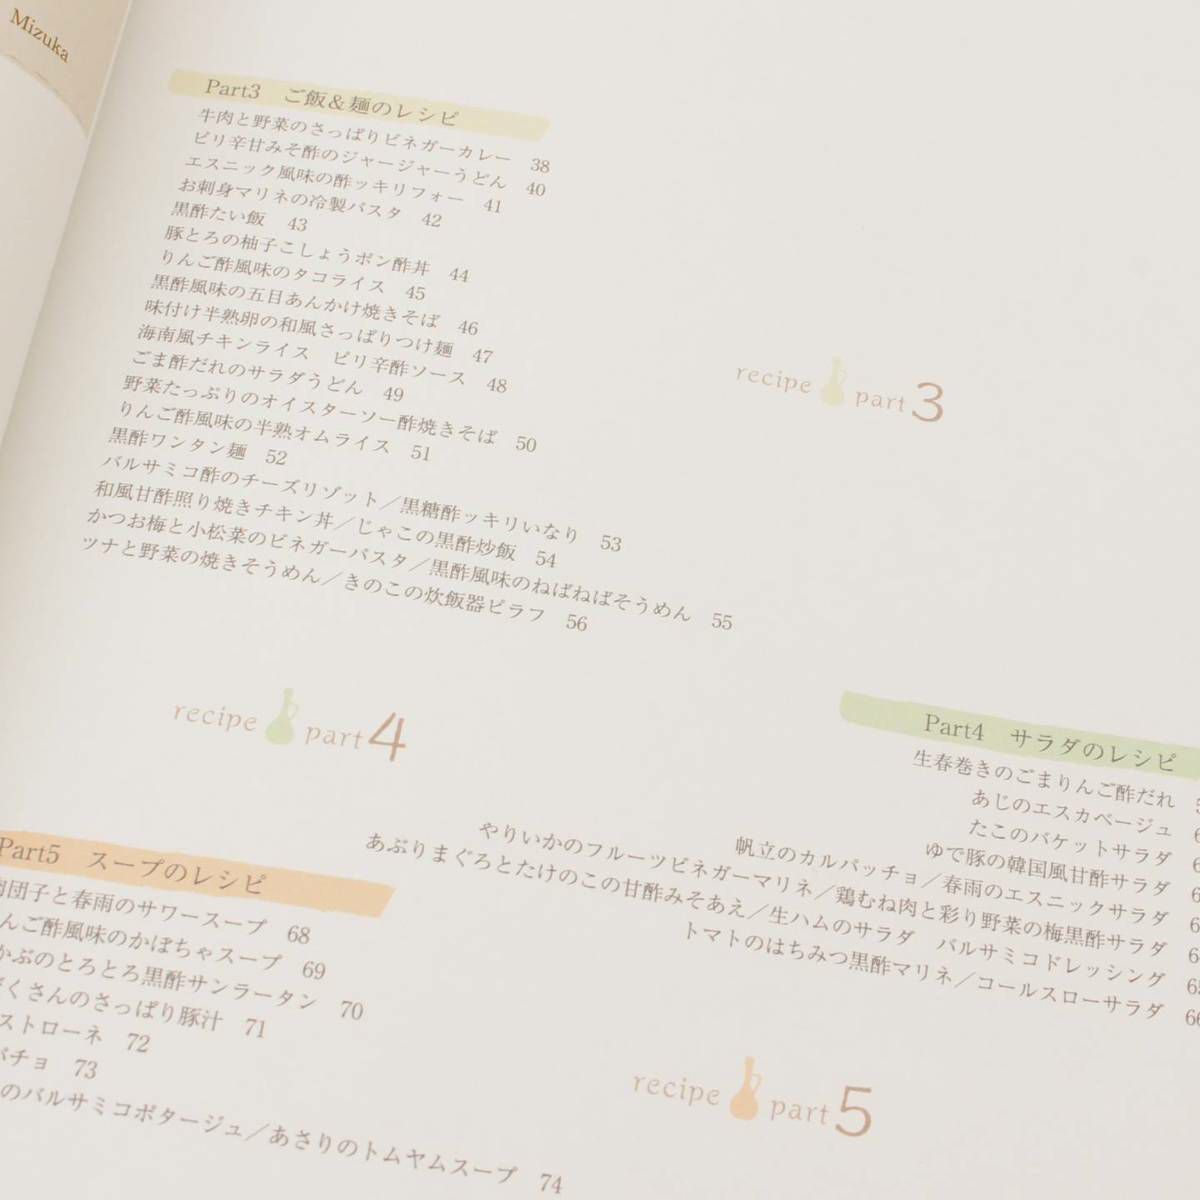 Mizuka
Part3 ご飯＆麺のレシピ
牛肉と野菜のさっぱりビネガーカレー 38
ピリ辛甘みそ酢のジャージャーうどん 40
エスニック風味の酢ッキリフォー 41
お刺身マリネの冷製パスタ 42
黒酢たい飯 43
豚とろの柚子こしょうポン酢丼 44
りんご酢風味のタコライス 45
黒酢風味の五目あんかけ焼きそば 46
味付け半熟卵の和風さっぱりつけ麺 47
海南風チキンライス ピリ辛酢ソース 48
ごま酢だれのサラダうどん 49
野菜たっぷりのオイスターソー酢焼きそば 50
りんご酢風味の半熟オムライス 51
黒酢ワンタン麺 52
バルサミコ酢のチーズリゾット／黒糖酢ッキリいなり 53
和風甘酢照り焼きチキン丼／じゃこの黒酢炒飯 54
かつお梅と小松菜のビネガーパスタ／黒酢風味のねばねばそうめん 55
ツナと野菜の焼きそうめん／きのこの炊飯器ピラフ 56
recipe part 3
recipe part 4
Part4 サラダのレシピ
生春巻きのごまりんご酢だれ
あじのエスカベージュ
たこのバケットサラダ
ゆで豚の韓国風甘酢サラダ
帆立のカルパッチョ／春雨のエスニックサラダ
やりいかのフルーツビネガーマリネ／鶏むね肉と彩り野菜の梅黒酢サラダ
あぶりまぐろとたけのこの甘酢みそあえ／生ハムのサラダ バルサミコドレッシング 65
トマトのはちみつ黒酢マリネ／コールスローサラダ 66
Part5 スープのレシピ
団子と春雨のサワースープ 68
んご酢風味のかぼちゃスープ 69
かぶのとろとろ黒酢サンラータン 70
くさんのさっぱり豚汁 71
ストローネ 72
パチョ 73
のバルサミコポタージュ／あさりのトムヤムスープ 74
recipe part 5